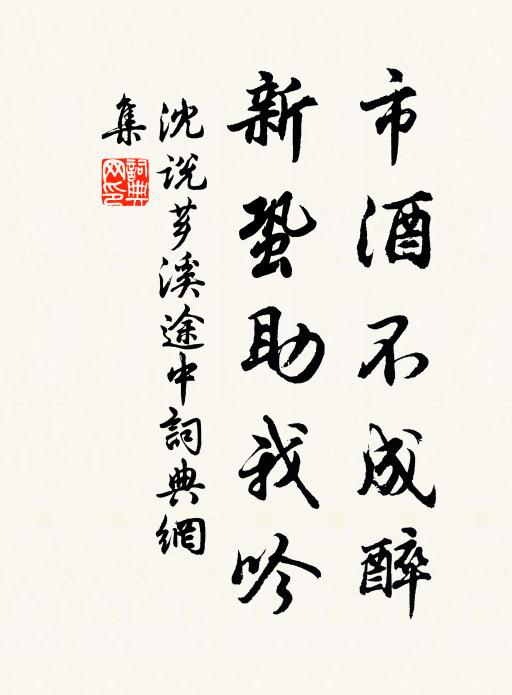 市酒不成醉
新蛩助我吟
沈说苕溪途中詞典網
集
詞典
网印